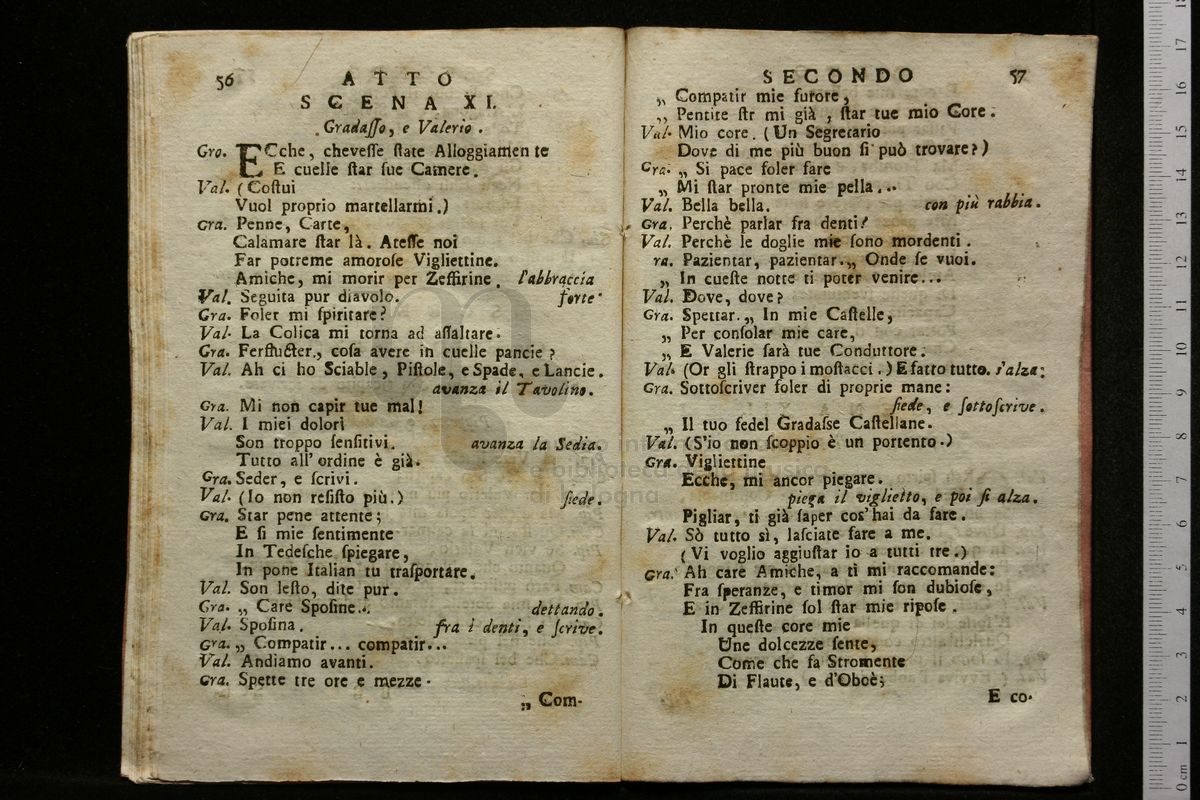 56 ATTO
SCENA XI.
Gradasso, e Valerio.
Gro. ECche, chevesse state Alloggiamente
E cuelle star sue Camere.
Val. (Costui
Vuol proprio martellarmi.)
Gra. Penne, Carte,
Calamare star là. Atesse noi
Far potreme amorose Vigliettine.
Amiche, mi morir per Zeffirine. l'abbraccia
Val. Seguita pur diavolo. forte.
Gra. Foler mi spiritare?
Val. La Colica mi torna ad assaltare.
Gra. Ferflucter., cosa avere in cuelle pancie?
Val. Ah ci ho Sciable, Pistole, e Spade, e Lancie.
avanza il Tavolino.
Gra. Mi non capir tue mal!
Val. I miei dolori
Son troppo sensitivi. avanza la Sedia.
Tutto all'ordine è già.
Gra. Seder, e scrivi.
Val. (Io non resisto più.) siede.
Gra. Star pene attente;
E si mie sentimente
In Tedesche spiegare,
In pone Italian tu trasportare.
Val. Son lesto, dite pur.
Gra. „ Care Sposine... dettando.
Val. Sposina. fra i denti, e scrive.
Gra. „ Compatir... compatir...
Val. Andiamo avanti.
Gra. Spette tre ore e mezze.
„ Com-
SECONDO 57
„ Compatir mie furore,
„ Pentire str mi già, star tue mio Core.
Val. Mio core. (Un Segretario
Dove di me più buon si può trovare?)
Gra. „ Si pace foler fare
„ Mi star pronte mie pella...
Val. Bella bella. con più rabbia.
Gra. Perchè parlar fra denti?
Val. Perchè le doglie mie sono mordenti.
ra. Pazientar, pazientar.„ Onde se vuoi.
„ In cueste notte ti poter venire...
Val. Dove, dove?
Gra. Spettar.„ In mie Castelle,
„ Per consolar mie care,
„ E Valerie sarà tue Conduttore.
Val. (Or gli strappo i mostacci.) E fatto tutto. s'alza;
Gra. Sottoscriver foler di proprie mane:
siede, e sottoscrive.
„ Il tuo fedel Gradasse Castellane.
Val. (S'io non scoppio è un portento.)
Gra. Vigliettine
Ecche, mi ancor piegare.
piega il viglietto, e poi si alza.
Pigliar, ti già saper cos'hai da fare.
Val. Sò tutto sì, lasciate fare a me.
(Vi voglio aggiustar io a tutti tre.)
Gra. Ah care Amiche, a ti mi raccomande:
Fra speranze, e timor mi son dubiose,
E in Zeffirine sol star mie ripose.
In queste core mie
Une dolcezze sente,
Come che fa Stromente
Di Flaute, e d'Oboè;
E co-